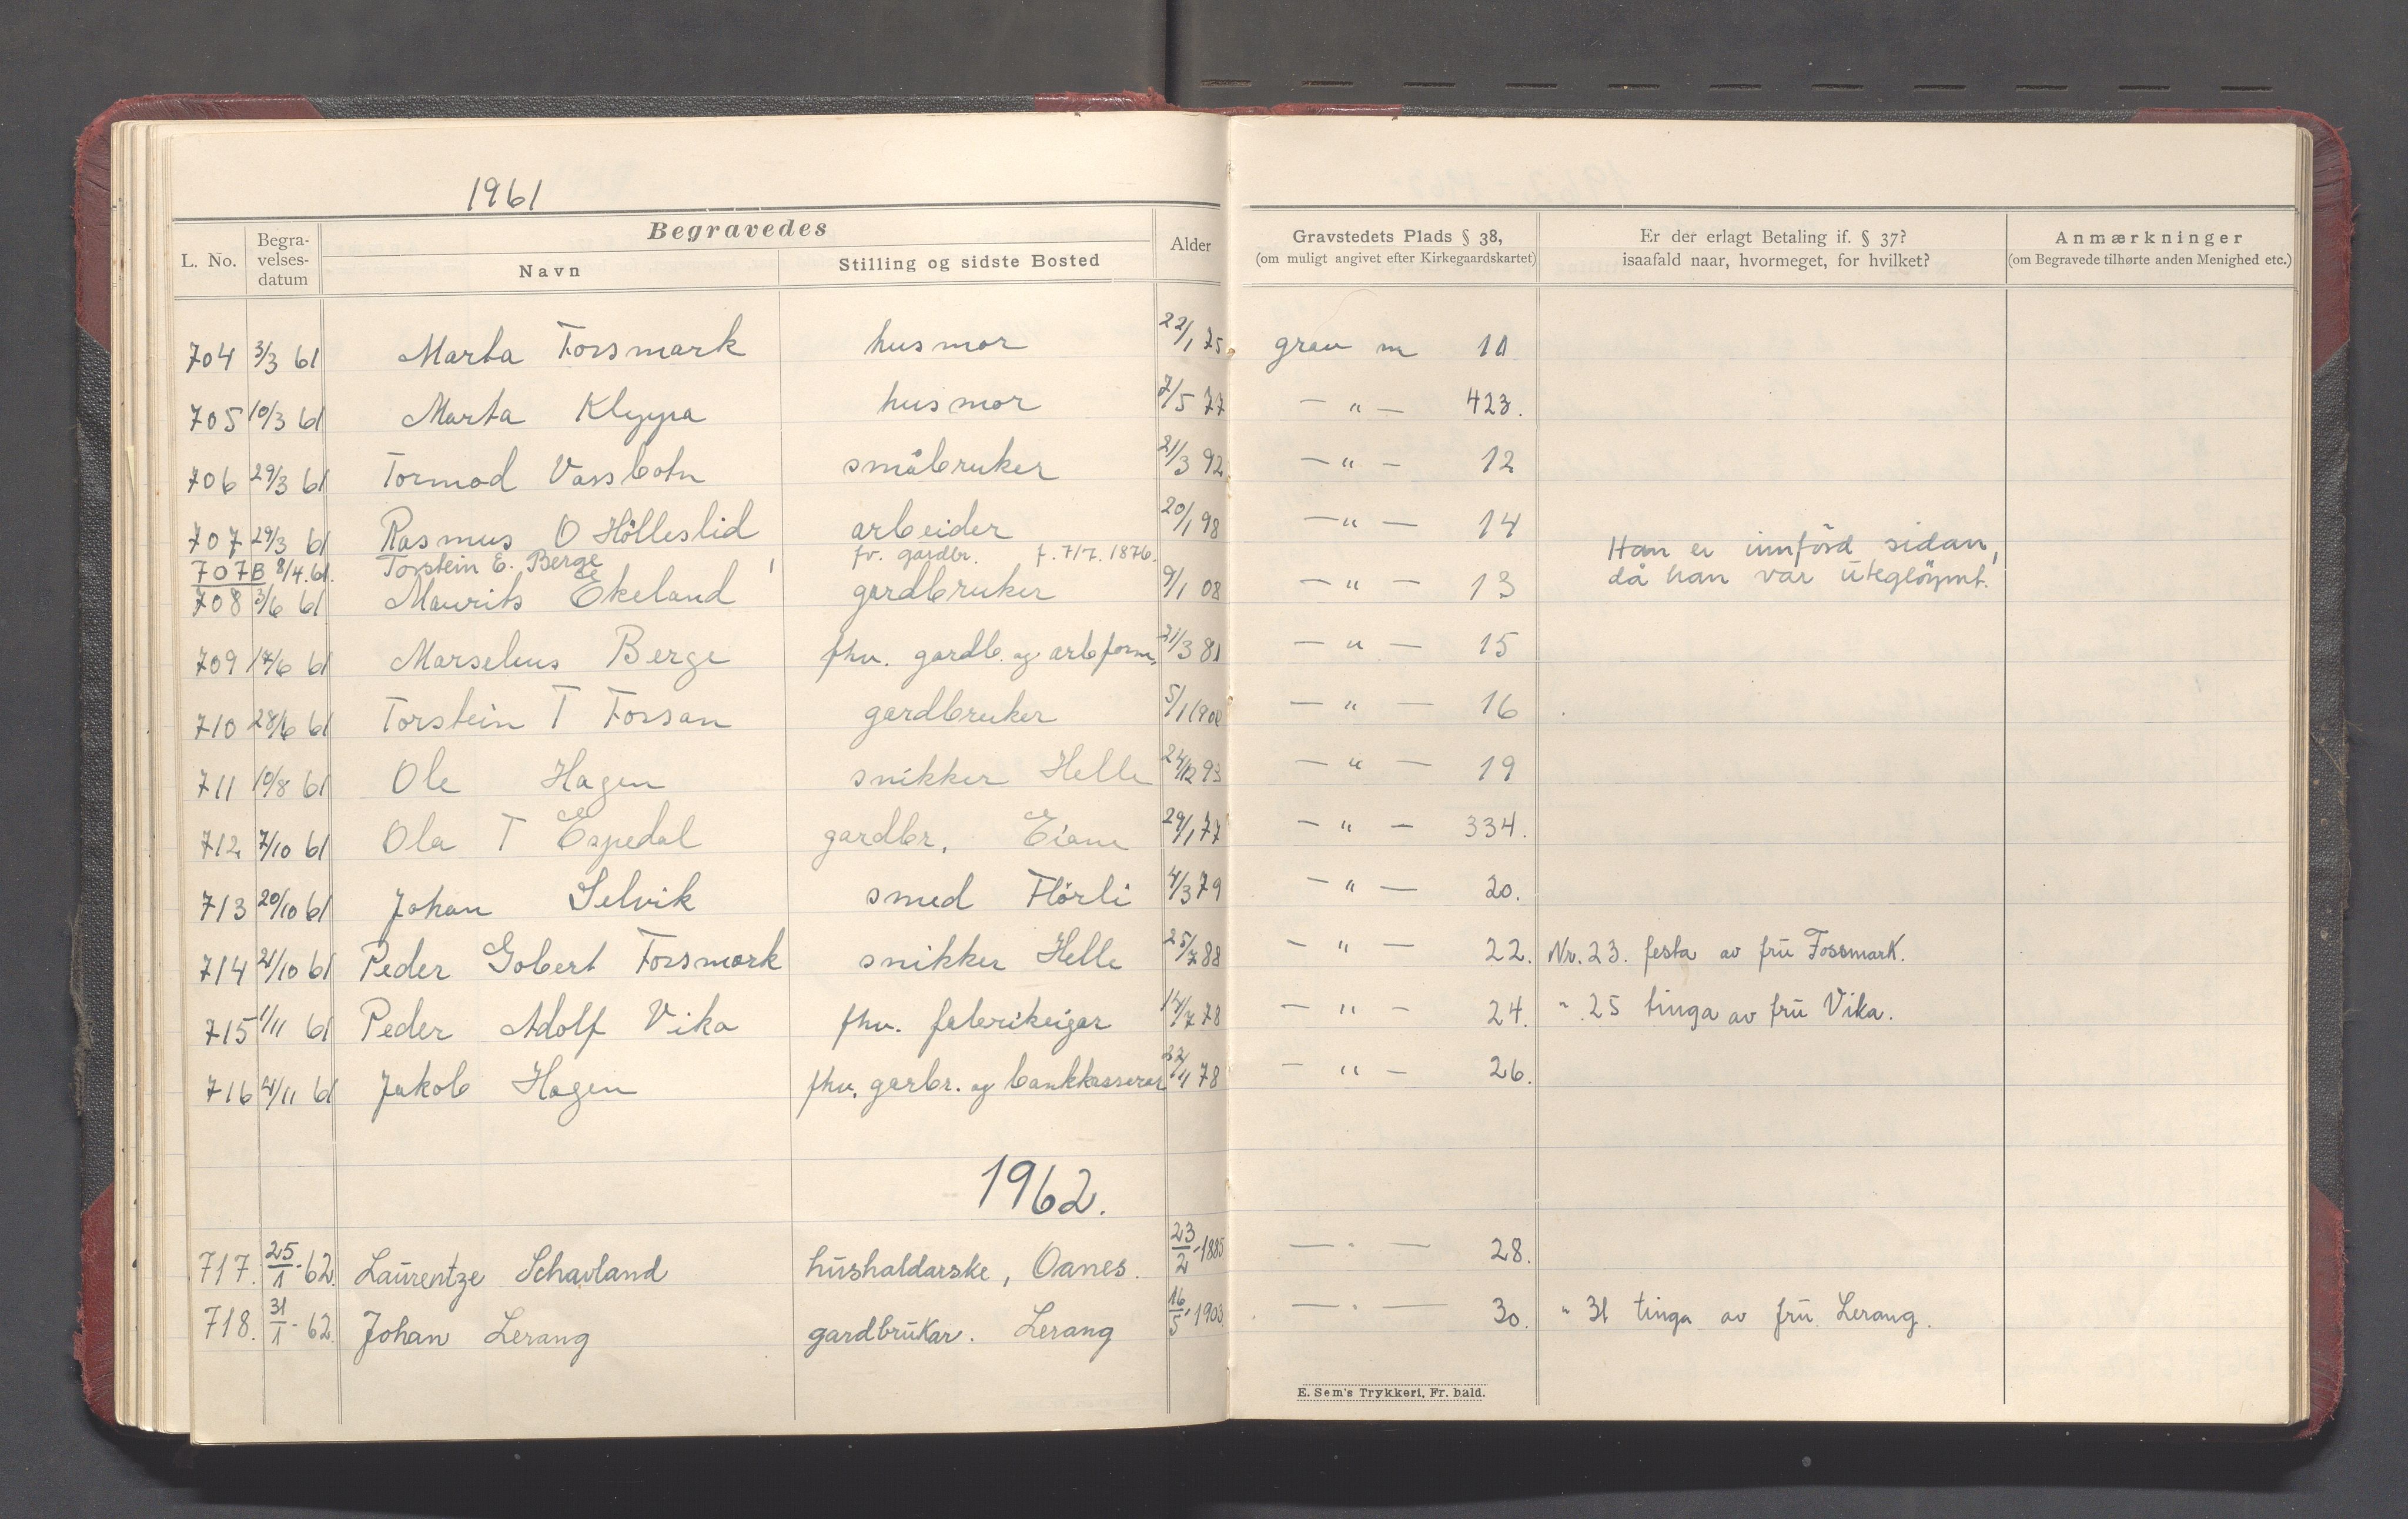 1961
L. No. Begra-velses-datum Begravedes Alder Gravstedets Plads § 38, (om muligt angivet efter Kirkegaardskartet) Er der erlagt Betaling if. § 37? isaafald naar, hvormeget, for hvilket? Anmærkninger (om Begravede tilhørte anden Menighed etc.)
Navn Stilling og sidste Bosted
704 3/3 61 Marta Fossmark husmor 22/1 75 grav nr 11
705 10/3 61 Marta Kleppa husmor 7/5 77 — " — 423.
706 29/3 61 Tormod Vassbotn småbruker 21/3 92 — " — 12
707 29/3 61 Rasmus O Hölleslid arbeider 20/1 98 — " — 14
707B 8/4.61. Torstein E. Berge fv. gardbr. f. 7/7. 1876. Han er innförd sidan,
då han var uteglöymt.
708 3/6 61 Maurits Ekeland gardbruker 9/1 08 — " — 13
709 17/6 61 Marselius Berge fhv. gardb. og arbform. 21/3 81 — " — 15
710 28/6 61 Torstein T Fossan gardbruker 5/1 1900 — " — 16
711 10/8 61 Ole Hagen snikker Helle 24/12 93 — " — 19
712 7/10 61 Ola T Espedal gardbr. Eiane 29/1 77 — " — 334.
713 20/10 61 Johan Selvik smed Flörli 4/3 79 — " — 20.
714 21/10 61 Peder Gobert Fossmark snikker Helle 25/7 88 — " — 22. Nr. 23. festa av frü Fossmark.
715 1/11 61 Peder Adolf Vika fhv. fabrikeigar 14/7 78 — " — 24. " 25 tinga av frü Vika.
716 4/11 61 Jakob Hagen fhv. garbr. og bankkasserar 78 — " — 26.
1962.
717. 25/1-62. Laürentze Schavland hüshaldarske, Oanes. 23/2-1885 — " — 28.
718. 31/1-62. Johan Lerang gardbrükar. Lerang 16/5-1903 — " — 30. " 31 tinga av frü Lerang.
E. Sem's Trykkeri, Fr.hald.